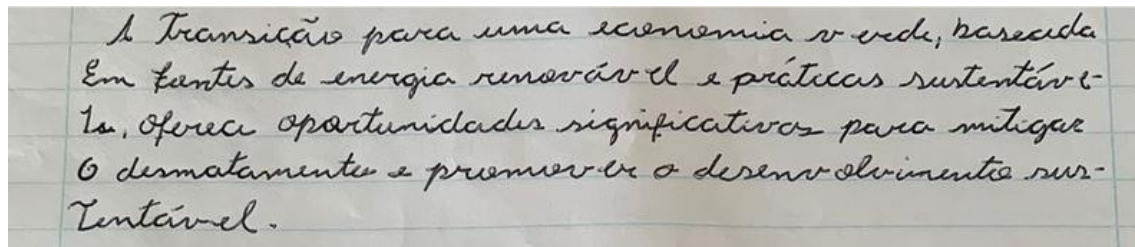 A Transição para uma economia verde, baseada
Em fontes de energia renovável e práticas sustentáve-
Is, oferece oportunidades significativas para mitigar
O desmatamento e promover o desenvolvimento sus-
Tentável.